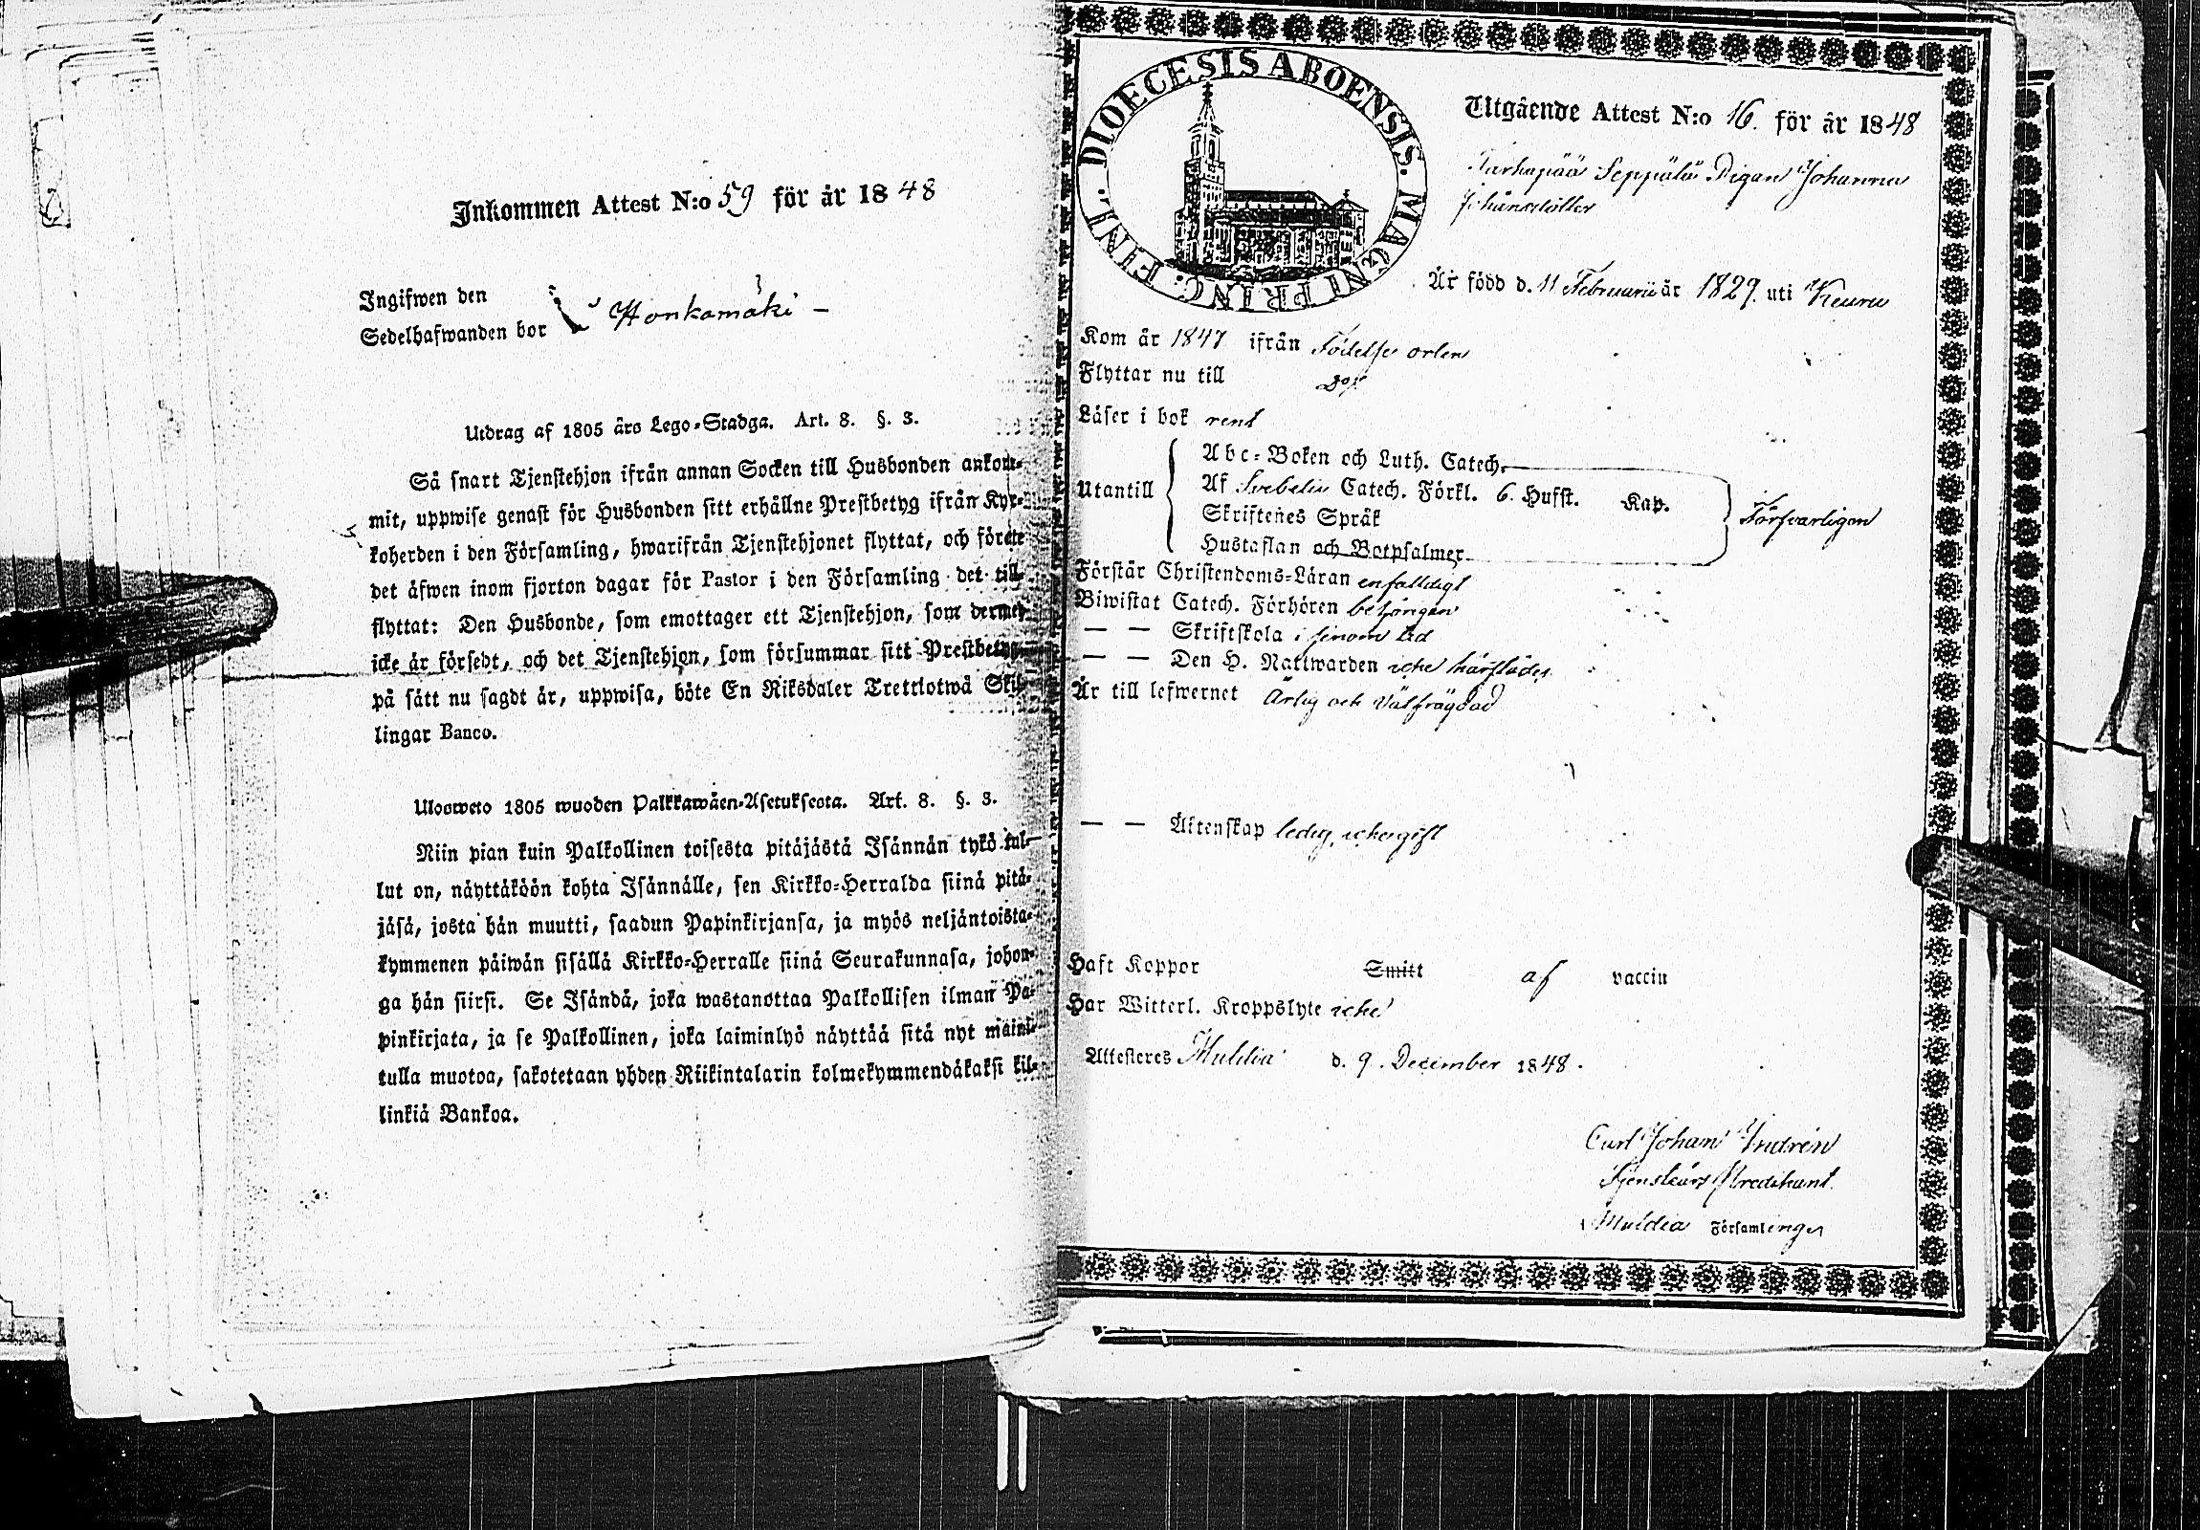 Inkommen Attest N:o 59 för år 1848
Ingifwen den
Sedelhafwanden bor i Honkamäki –
Utdrag af 1805 års Lego-Stadga. Art. 8. §. 3.
Så snart Tjenstehjon ifrån annan Socken till Husbonden ankom-
mit, uppwise genast för Husbonden sitt erhållne Prestbetyg ifrån Kyr-
koherden i den Församling, hwarifrån Tjenstehjonet flyttat, och förete
det äfwen inom fjorton dagar för Pastor i den Församling det till-
flyttat: Den Husbonde, som emottager ett Tjenstehjon, som dermed
icke är försedt, och det Tjenstehjon, som försummar sitt Prestbetyg
på sätt nu sagdt är, uppwisa, böte En Riksdaler Trettiotwå Skil-
lingar Banco.
Ulosweto 1805 wuoden Palkkawäen-Asetuksesta. Art. 8. §. 3.
Niin pian kuin Palkollinen toisesta pitäjästä Isännän tykö tul-
lut on, näyttäköön kohta Isännälle, sen Kirkko-Herralda siinä pitä-
jäsä, josta hän muutti, saadun Papinkirjansa, ja myös neljäntoista-
kymmenen päiwän sisällä Kirkko-Herralle siinä Seurakunnasa, johon-
ga hän siirsi. Se Isändä, joka wastanottaa Palkollisen ilman Pa-
pinkirjata, ja se Palkollinen, joka laiminlyö näyttää sitä nyt maini-
tulla muotoa, sakotetaan yhden Riikintalarin kolmekymmendäkaksi kil-
linkiä Bankoa.
DIOECESIS ABOENSIS. MAGNI PRINC. FINL.
Utgående Attest N:o 16. för år 1848
Tarhapää Seppälä Pigan Johanna
Johansdotter
Är född d. 11 Februarii år 1829. uti Keuru
Kom år 1847 ifrån Födelse orten
Flyttar nu till Do
Läser i bok rent
Utantill
Abc-Boken och Luth. Catech.
Af Svebelii Catech. Förkl. 6. Hufst. Kap.
Skriftenes Språk
Hustaflan och Botpsalmer
Försvarligen
Förstår Christendoms-Läran enfaldigt
Biwistat Catech. Förhören behörigen
— — Skriftskola i sinom tid
— — Den H. Nattwarden icke härstädes
Är till lefwernet Ärlig och Välfrägdad
— — Äktenskap ledig, icke gift
Haft Koppor Smitt af vaccin
Har Witterl. Kroppslyte icke
Attesteres Muldia d. 9. December 1848.
Carl Johan
Tjenstgörs Predikant.
i Muldia Församlinger